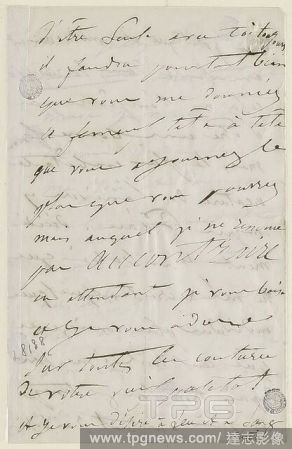 Être seule avec toi toujours
il faudra pourtant bien
que vous me donniez
ce fameux tête à tête
que vous ajournez le
plus que vous pourrez
mais auquel je ne renonce
pas au contraire
en attendant je vous baise
et je vous adore
sur toutes les coutures
de votre vieil paletot
et je vous désire à
L8188
TPG
www.tpgnews.com/ 達志影像